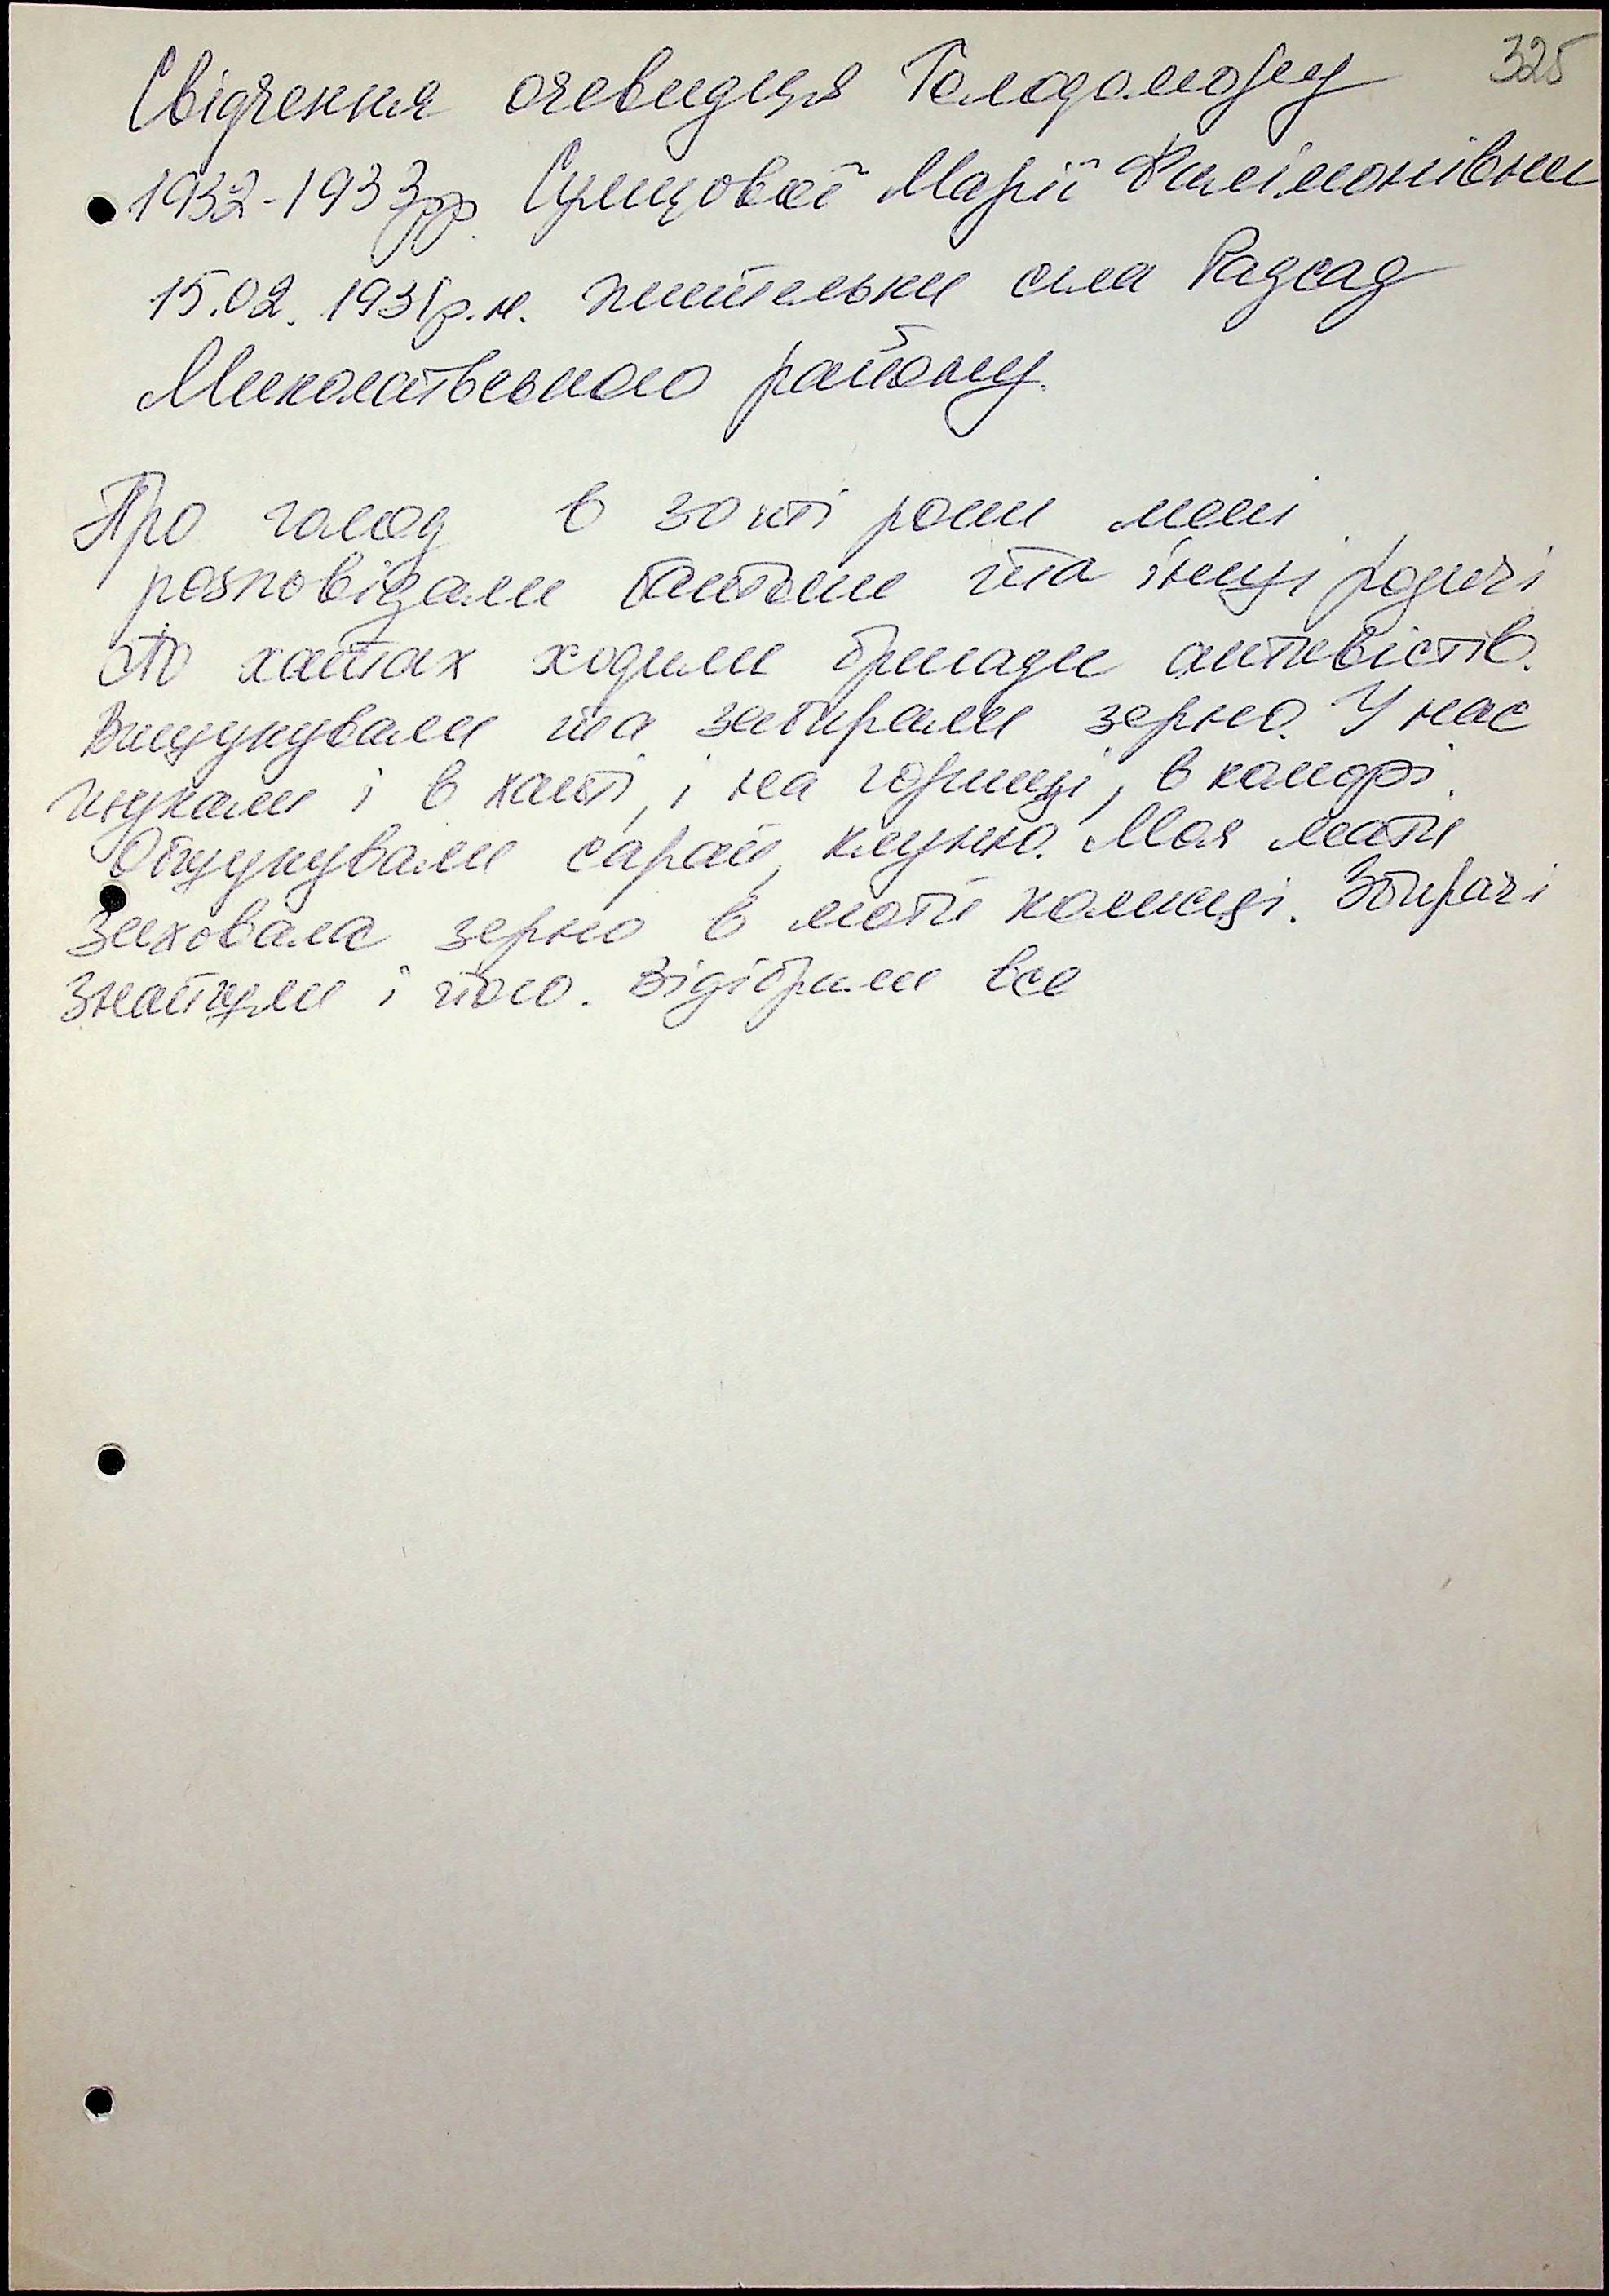 325
Свідчення очевидця Голодомору
1932-1933рр. Сумцової Марії Филімонівни
15.02.1931р.н. жительки села Радсад
Миколаївського району.
Про голод в 30ті роки мені
розповідали батьки та інші родичі
По хатах ходили бригади активістів.
Вишукували та забирали зерно. У нас
шукали і в хаті, і на горищі, в коморі.
Обшукували сарай, клуню. Моя мати
заховала зерно в моїй колисці. Збирачі
знайшли і його. Відібрали все